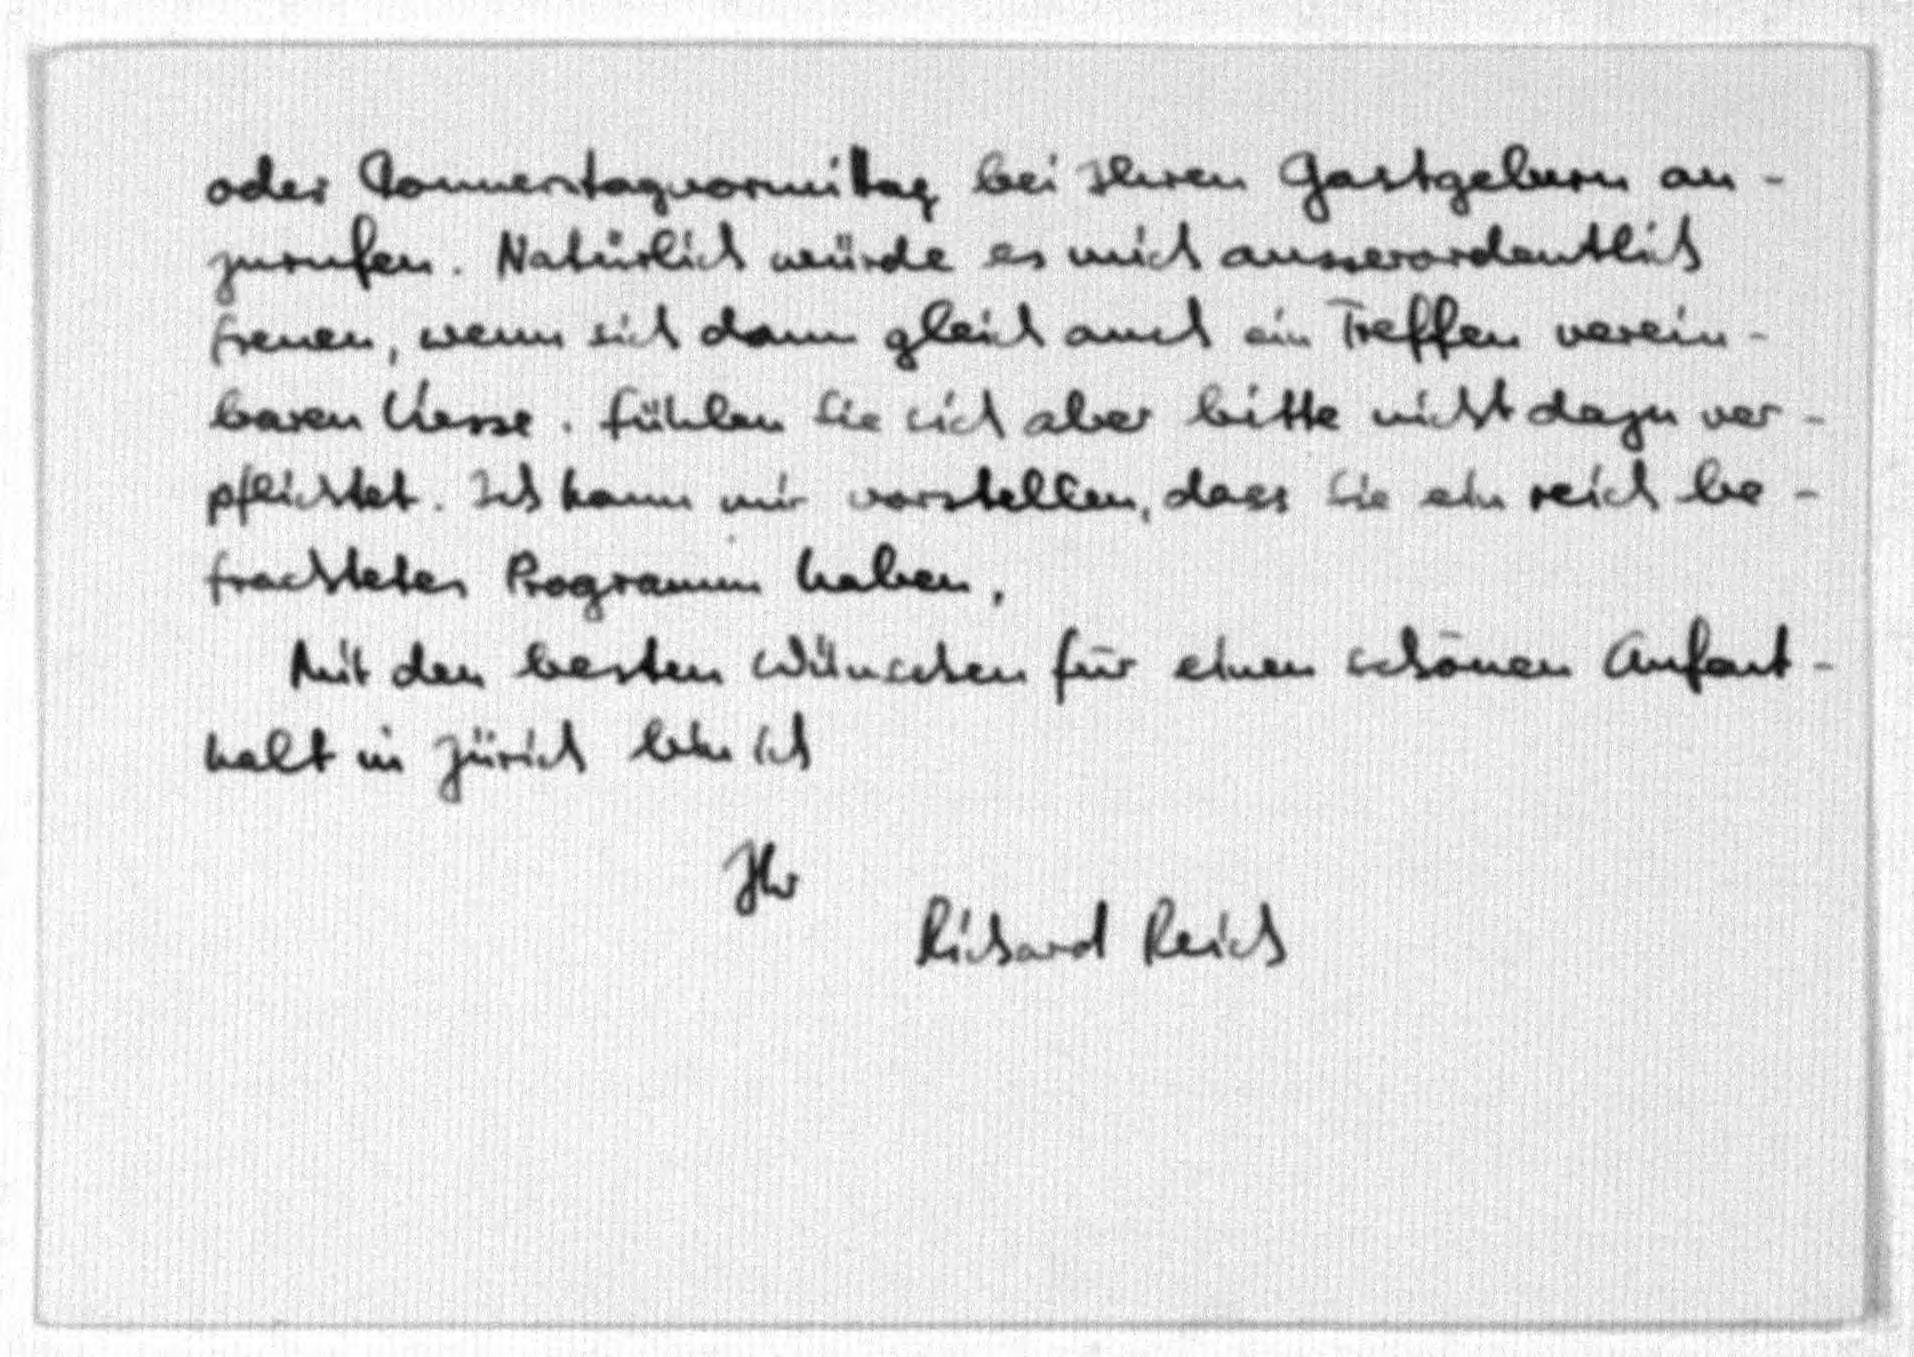 oder Donnerstagvormittag bei Ihren Gastgebern an-
zurufen. Natürlich würde es mich ausserordentlich
freuen, wenn sich dann gleich auch ein Treffen verein-
baren liesse. Fühlen Sie sich aber bitte nicht dazu ver-
pflichtet. Ich kann mir vorstellen, dass Sie ein reich be-
frachtetes Programm haben.
Mit den besten Wünschen für einen schönen Aufent-
halt in Zürich bin ich
Ihr
Richard Reich